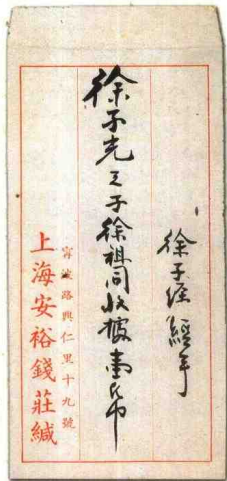 徐子經經手
徐子光之子徐祖同收據壹紙
寗波路興仁里十九號
上海安裕錢莊緘